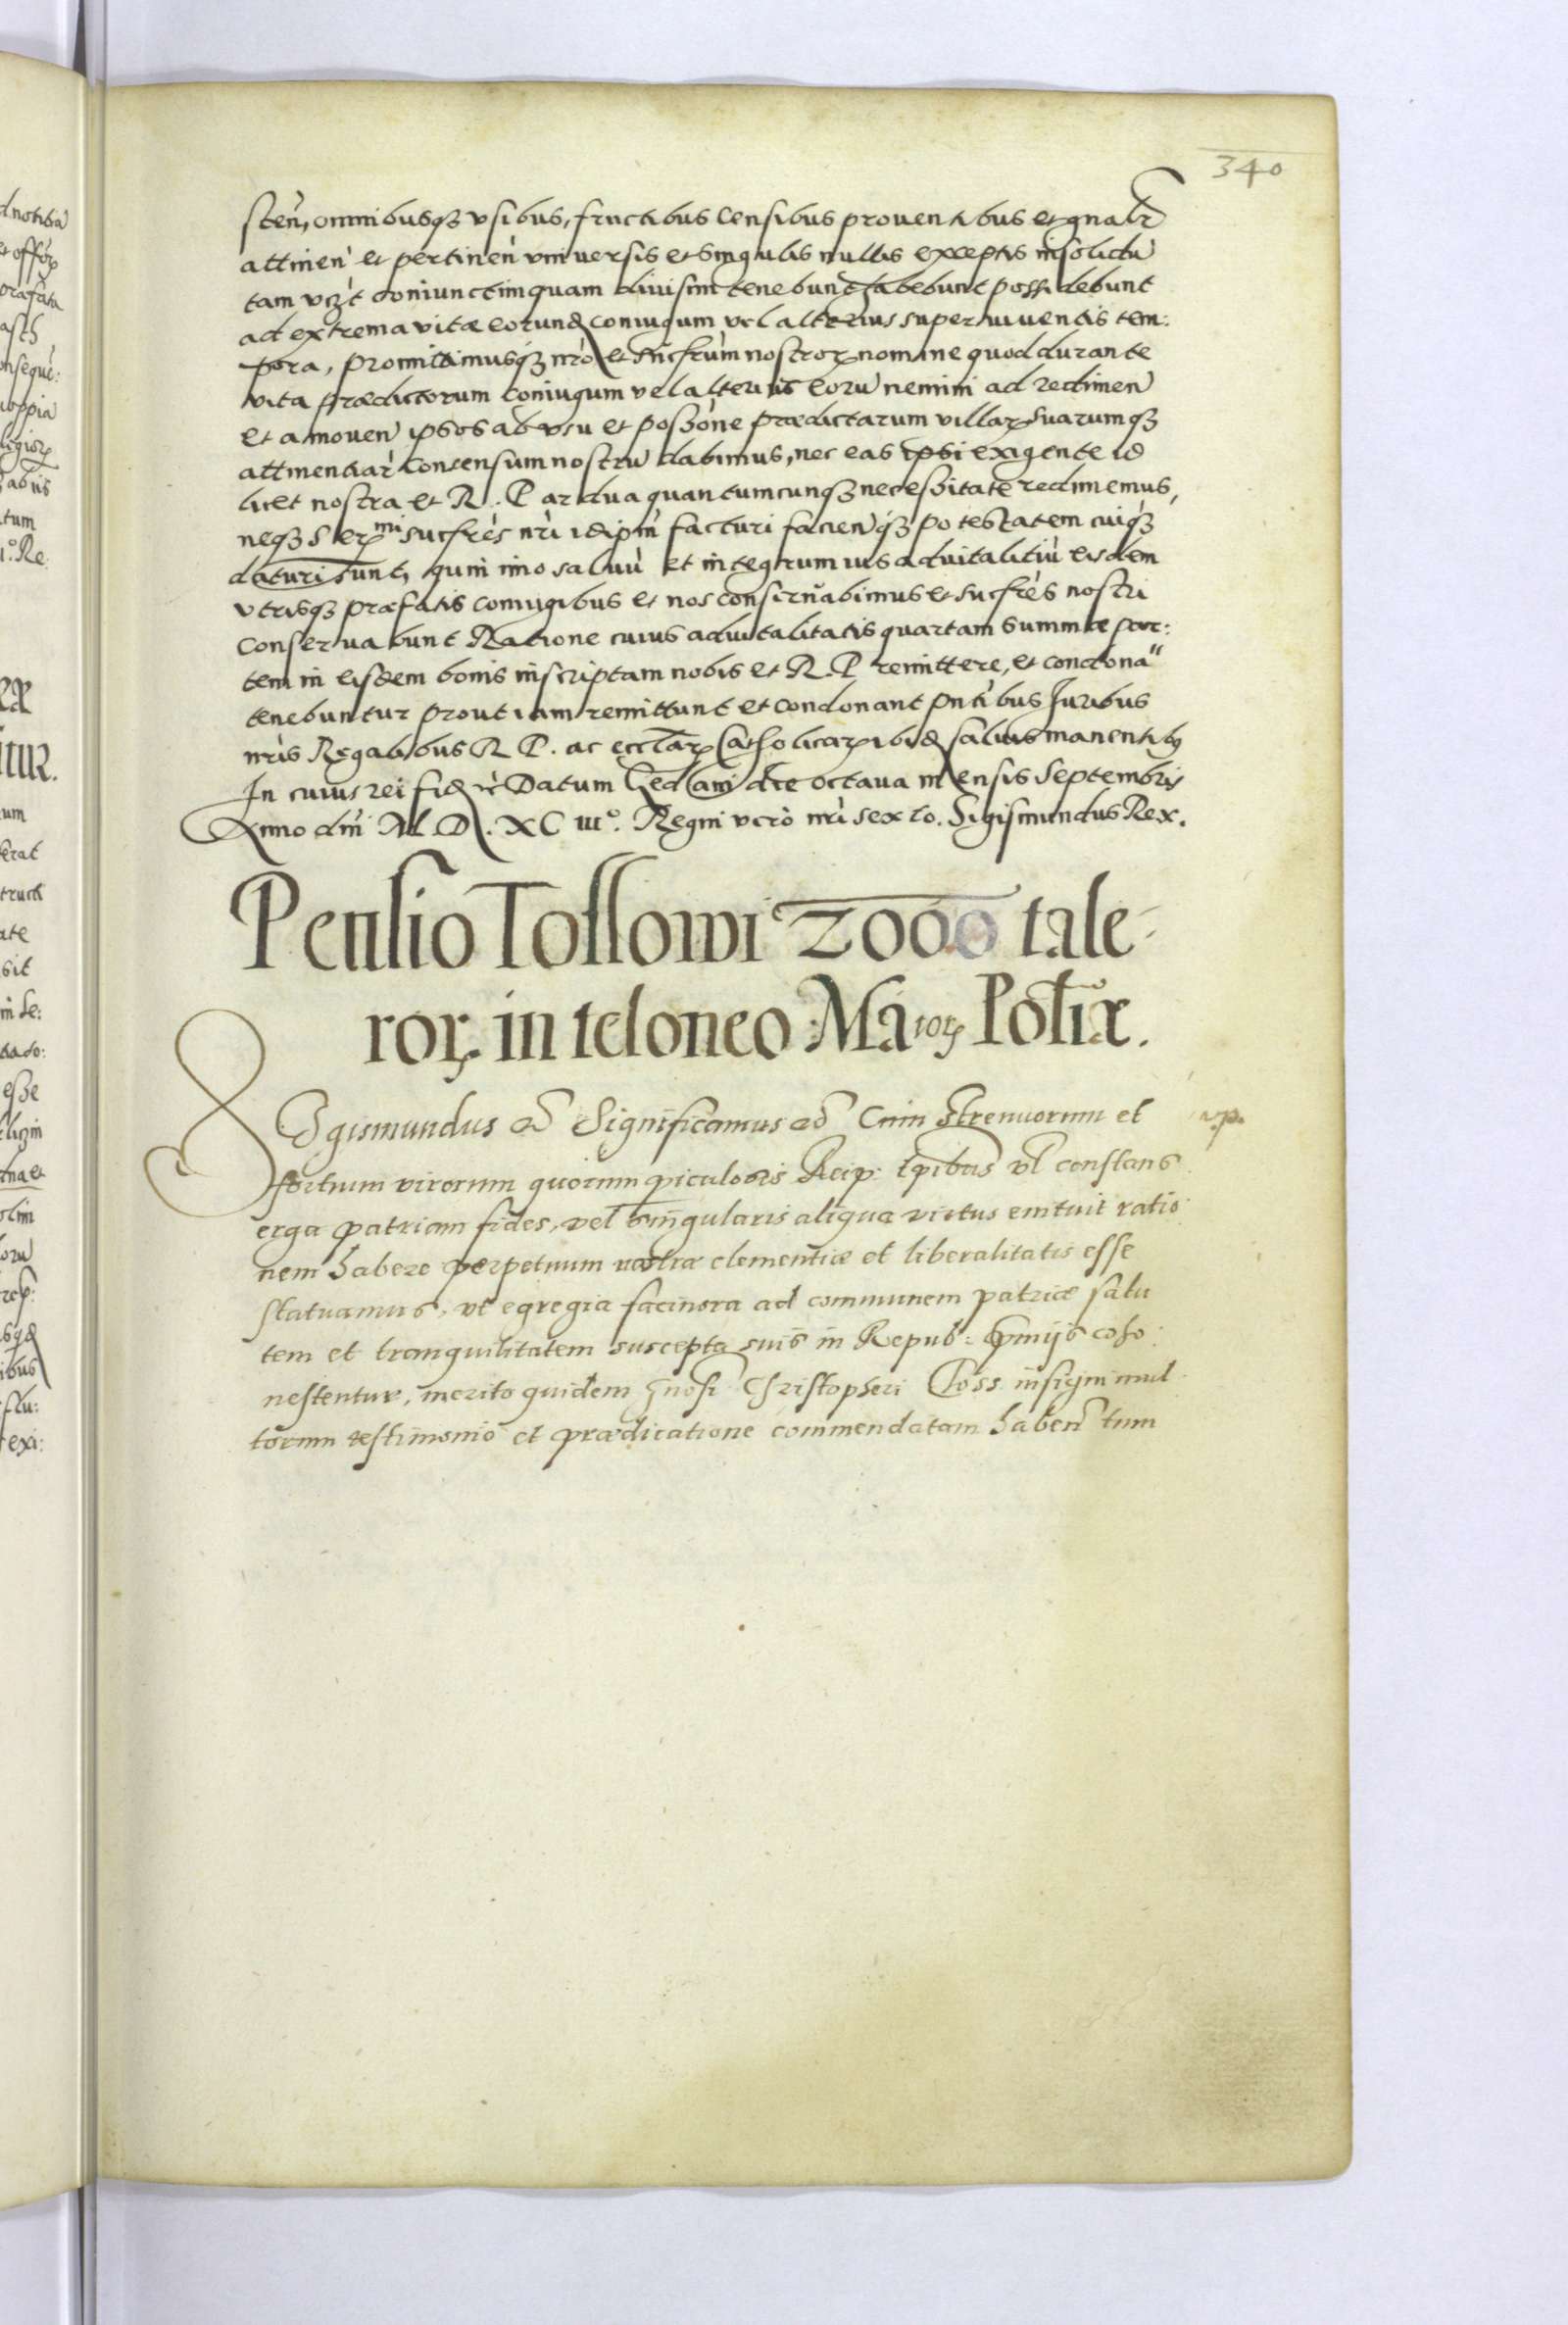 340
sten̄, omnibusq꜄ vsibus, fructibus censibus prouentibus et gnalr̄
attinen̄ et pertinen̄ vniuersis et singulis nullis exceptis in solidū
tam vꝫt coniunctim quam diuisim tenebunt habebunt possidebunt
ad extrema vitæ eorund coniugum vel alterius superuiuentis tem:
pora, promittimusq꜄ nr̄o et Sucsrum nostroꝝ nomine quod durante
vita prædictorum coniugum vel alterius eorū nemini ad redimen̄
et amouen̄ ipsos ab vsu et possōne prædictarum villaꝝ suarumq꜄
attinentiar̄ consensum nostrū dabimus, nec eas ipsi exigente id
licet nostra et R. P ardua quantumcunq꜄ necessitate redimemus,
neq꜄ Sermi sucsrēs nr̄i idipm̄ facturi facien q꜄ potestatem cuiq꜄
daturi sunt, quin imo saluū et integrum ius aduitalitiū eisdem
vtrisq꜄ præfatis coniugibus et nos conseruabimus et sucsrēs nostri
conseruabunt Ratione cuius aduitalitatis quartam summæ par:
tem in eisdem bonis inscriptam nobis et R. P remittere, et condona"
tenebuntur prout iam remittunt et condonant pntibus Juribus
nr̄is Regalibus R P. ac eccl̄aꝝ Catholicaꝝ ibid saluis manentibꝫ
In cuius rei fid etc̄ Datum Gedani die octaua mensis Septembris
Anno dn̄i M. D. XC iii°. Regni verò nr̄i sexto. Sigismundus Rex.
Pensio Tossowi 2000 tale-
roꝝ in teloneo Maioꝝ Poliæ.
Sigismundus etc̄ Significamus etc̄ Cum strenuorum et
fortium virorum quorum periculosis Reip: tp̄ibus vl̄ constans
erga patriam fides, vel singularis aliqua virtus enituit ratio
nem habere perpetuum nostræ clementiæ et liberalitatis esse
statuamus, vt egregia facinora ad communem patriæ salu
tem et tranquilitatem suscepta suis in Repub: præmijs coho
nestentur, merito quidem gnosi Christopheri Toss insigni mul
torum testimonio et prædicatione commendatam haben̄ tum